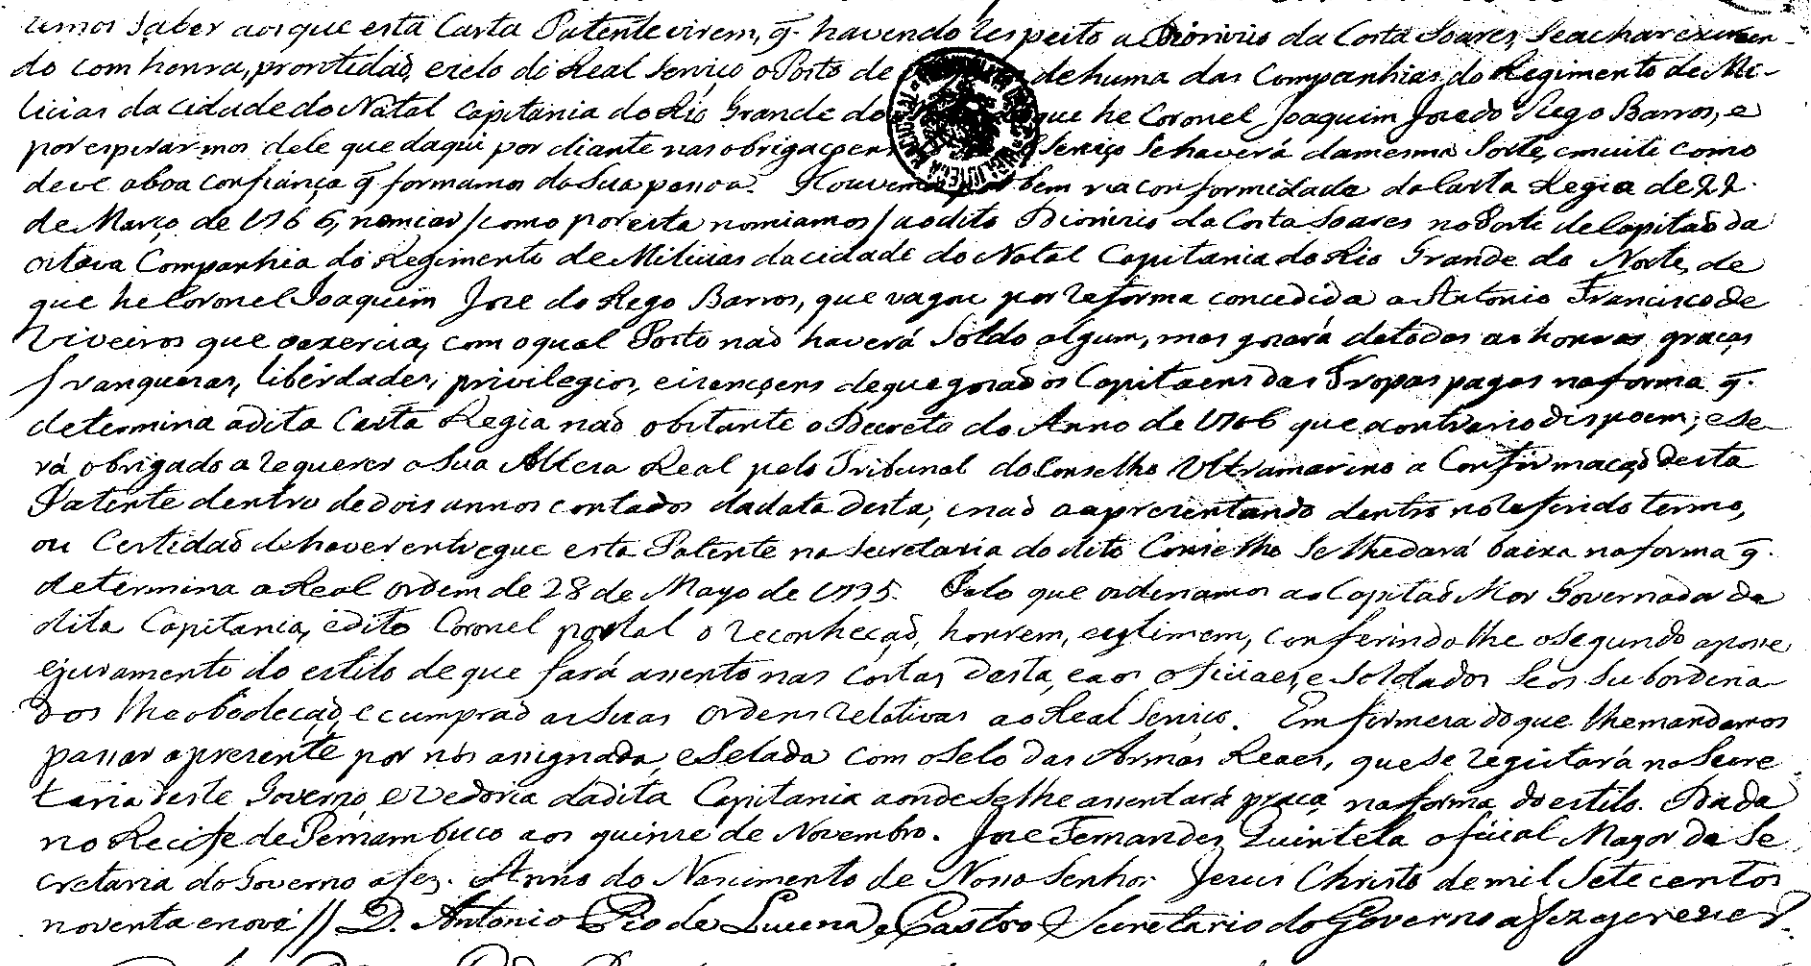 zemos saber aos que esta Carta Patente virem, q. havendo respeito a Dionizio da Costa Soares, Seachar exercen-
do com honra, prontidaõ, e zelo do Real Serviço o Posto de de huma das Companhias do Regimento de Mi-
licias da cidade do Natal Capitania do Rio Grande do que he Coronel Joaquim Joze do Rego Barros, e
por esperarmos dele que daqui por diante nas obrigaçoens Serviço Sehaverá damesma Sorte, emuito como
deve aboa confiança q. formamos da Sua pessoa. Houvemos por bem na conformidade da Carta Regia de 22.
de Março de 1766, nomiar / como por esta nomiamos / ao dito Dionizio da Costa Soares no Posto de Capitaõ da
oitava Companhia do Regimento de Milicias da cidade do Natal Capitania do Rio Grande do Norte, de
que he Coronel Joaquim Joze do Rego Barros, que vagou por reforma concedida a Antonio Francisco de
Viveiros que o exercia, com o qual Posto naõ haverá Soldo algum, mas gozará de todas as honras, graças
franquezas, liberdades, privilegios, eizençoens de que gozaõ os Capitaens das Tropas pagas na forma q.
determina adita Carta Regia naõ obstante o Decreto do Anno de 1706 que o contrario dispoem; e se-
rá obrigado a requerer a Sua Alteza Real pelo Tribunal do Conselho Ultramarino a Confirmaçaõ desta
Patente dentro de dois annos contados da data desta, enaõ a aprezentando dentro no referido termo,
ou Certidaõ de haver entregue esta Patente na Secretaria do dito Conselho Se lhe dará baixa na forma q.
determina a Real ordem de 28 de Mayo de 1795. Pelo que ordenamos ao Capitaõ Mor Governador da
dita Capitania, e dito Coronel por tal o reconheçaõ, honrem, e estimem, conferindo lhe o Segundo a posse
ejuramento do estilo de que fará assento nas Costas desta, eaos oficiaes, e Soldados Seos Subordina
dos lhe obedeçaõ, e cumpraõ as Suas Ordens relativas ao Real Serviço. Em firmeza do que lhe mandamos
passar aprezente por nós assignada, e Selada com o Selo das Armas Reaes, que se registará na Secre
taria deste Governo, e Vedoria dadita Capitania aonde Se lhe assentará praça na forma do estilo. Dada
no Recife de Pernambuco aos quinze de Novembro. Joze Fernandes Quintela oficial Mayor da Se
cretaria do Governo a fez. Anno do Nascimento de Nosso Senhor Jesus Christo de mil Sete centos
noventa e nove // D. Antonio Pio de Lucena, e Castro Secretario do Governo a fez escrever